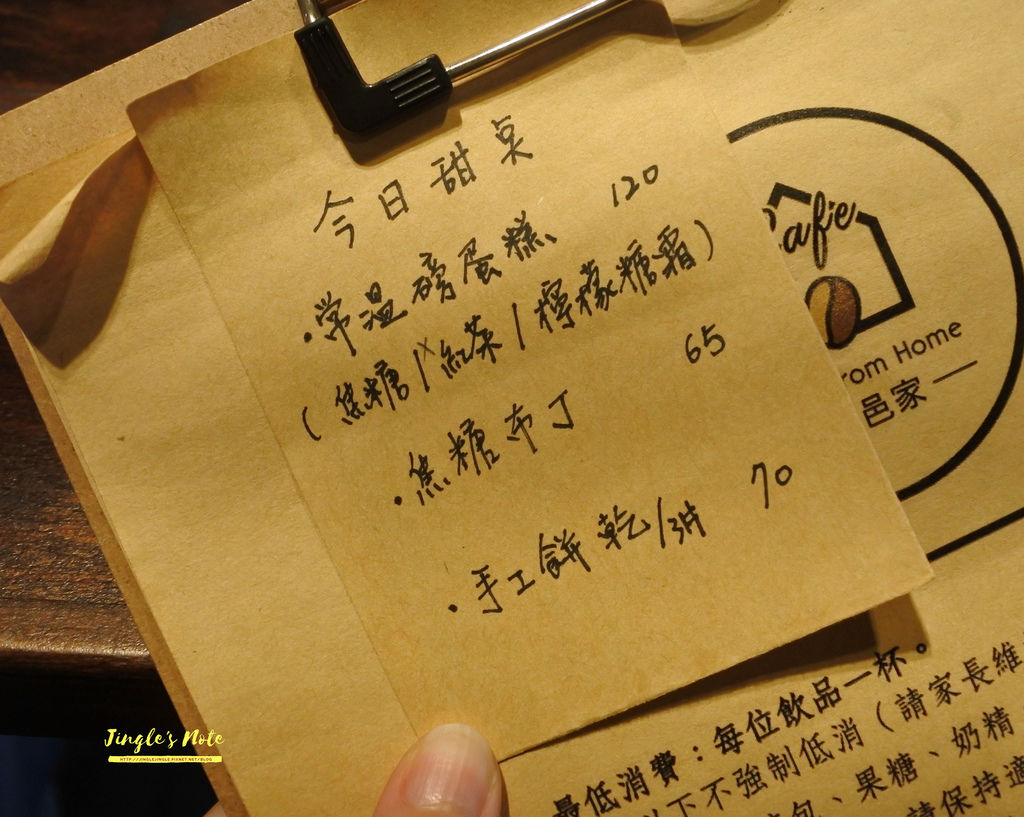 今日甜桌
·常温磅蛋糕、 120
(焦糖/紅茶/檸檬糖霜)
·焦糖布丁 65
·手工餅乾/3片 70
Cafe
From Home
邑家
最低消費：每位飲品一杯。
以下不強制低消（請家長維
包、果糖、奶精
請保持適
Jingle's Note
HTTP://JINGLEJINGLE.PIXNET.NET/BLOG